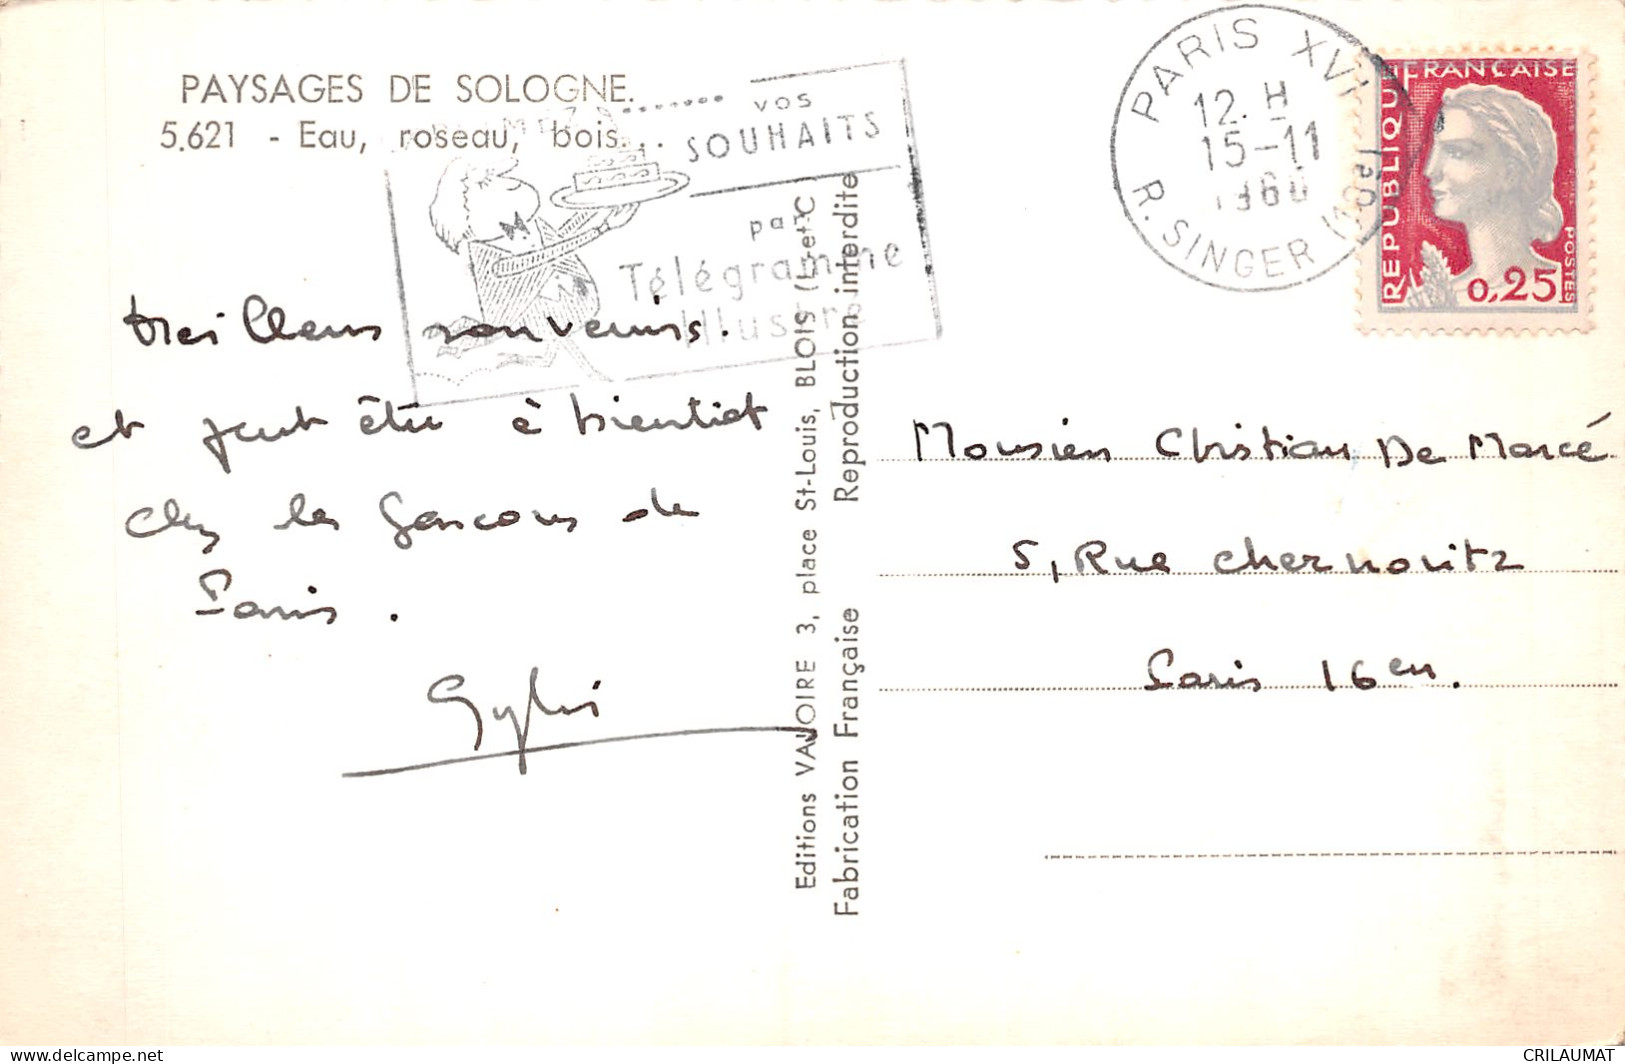 PAYSAGES DE SOLOGNE.
5.621 - Eau, roseau, bois...
VOS
SOUHAITS
par
Télégramme
Illustré
PARIS XVI
12 H
15-11
1960
R. SINGER (16e)
REPUBLIQUE FRANÇAISE
POSTES
0,25
Meilleurs souvenirs.
et peut être à bientôt
chez les garçons de
Paris.
Editions VALOIRE 3, place St-Louis, BLOIS (L.-et-C
Fabrication Française Reproduction interdite
Monsieur Christian De Marcé
5, Rue Chernovitz
Paris 16en.
delcampe.net
CRILAUMAT